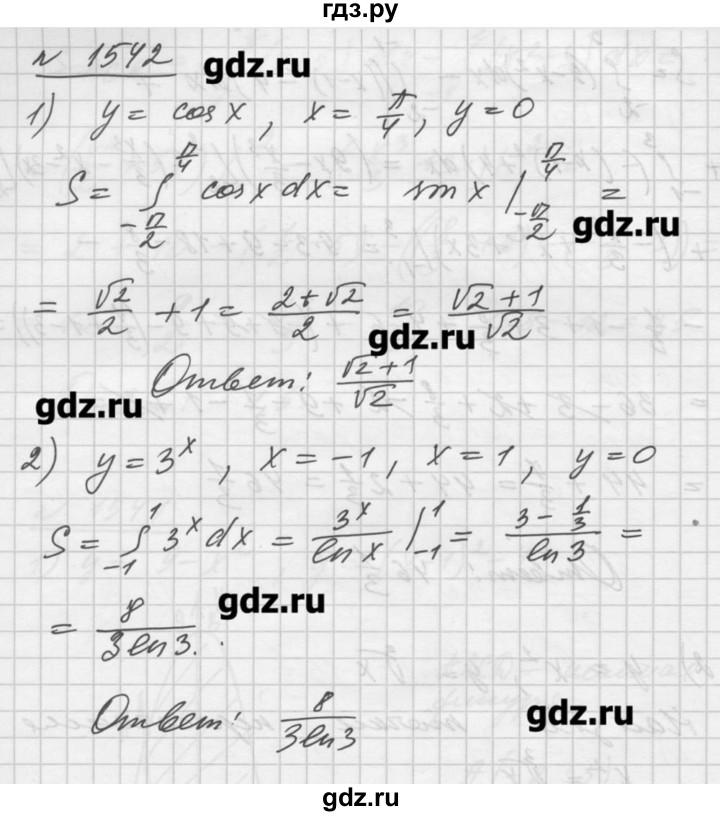 гдз.ру
№ 1542 gdz.ru
1) y = cos x, x = π/4, y = 0
S = ∫_{-π/2}^{π/4} cos x dx = sin x |_{-π/2}^{π/4} =
gdz.ru
= √2/2 + 1 = (2+√2)/2 = (√2+1)/√2
gdz.ru
Ответ: (√2+1)/√2
gdz.ru
2) y = 3^x, x = -1, x = 1, y = 0
S = ∫_{-1}^{1} 3^x dx = 3^x/ln x |_{-1}^{1} = (3 - 1/3)/ln 3 =
gdz.ru
= 8/(3 ln 3).
Ответ: 8/(3 ln 3)
gdz.ru
gdz.ru